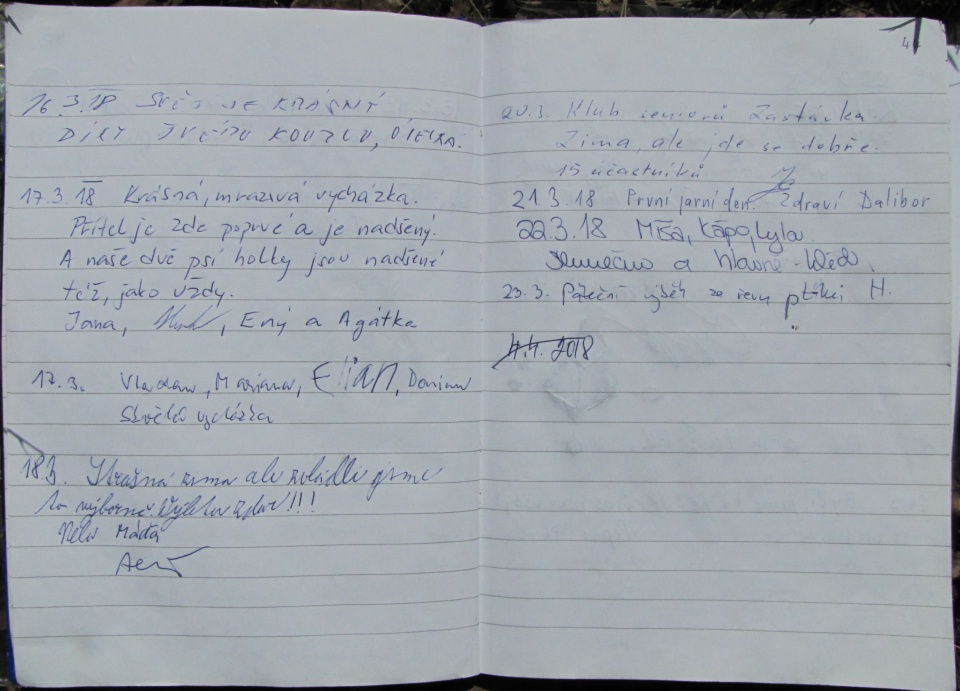 16.3.18 SVĚT JE KRÁSNÝ
DÍKY TVÉMU KOUZLU,
17.3.18 Krásná, mrazivá vycházka.
Přítel je zde poprvé a je nadšený.
A naše dvě psí holky jsou nadšené
též, jako vždy.
Jana, , Eny a Agátka
17.3. Vladan, Mariana, Elian, Damian
Skvělá vycházka
18.3. Strašná zima ale zvládli jsme
to výborně. !!!
Nela Máta
20.3. Klub seniorů Zastávka.
Zima, ale jde se dobře.
15 účastníků
21.3.18 První jarní den. Zdraví Dalibor
22.3.18 Míša, Kápo,
Slunečno a hlavně klid.
23.3. Páteční výběh za řevu ptáků H.
4.4. 2018